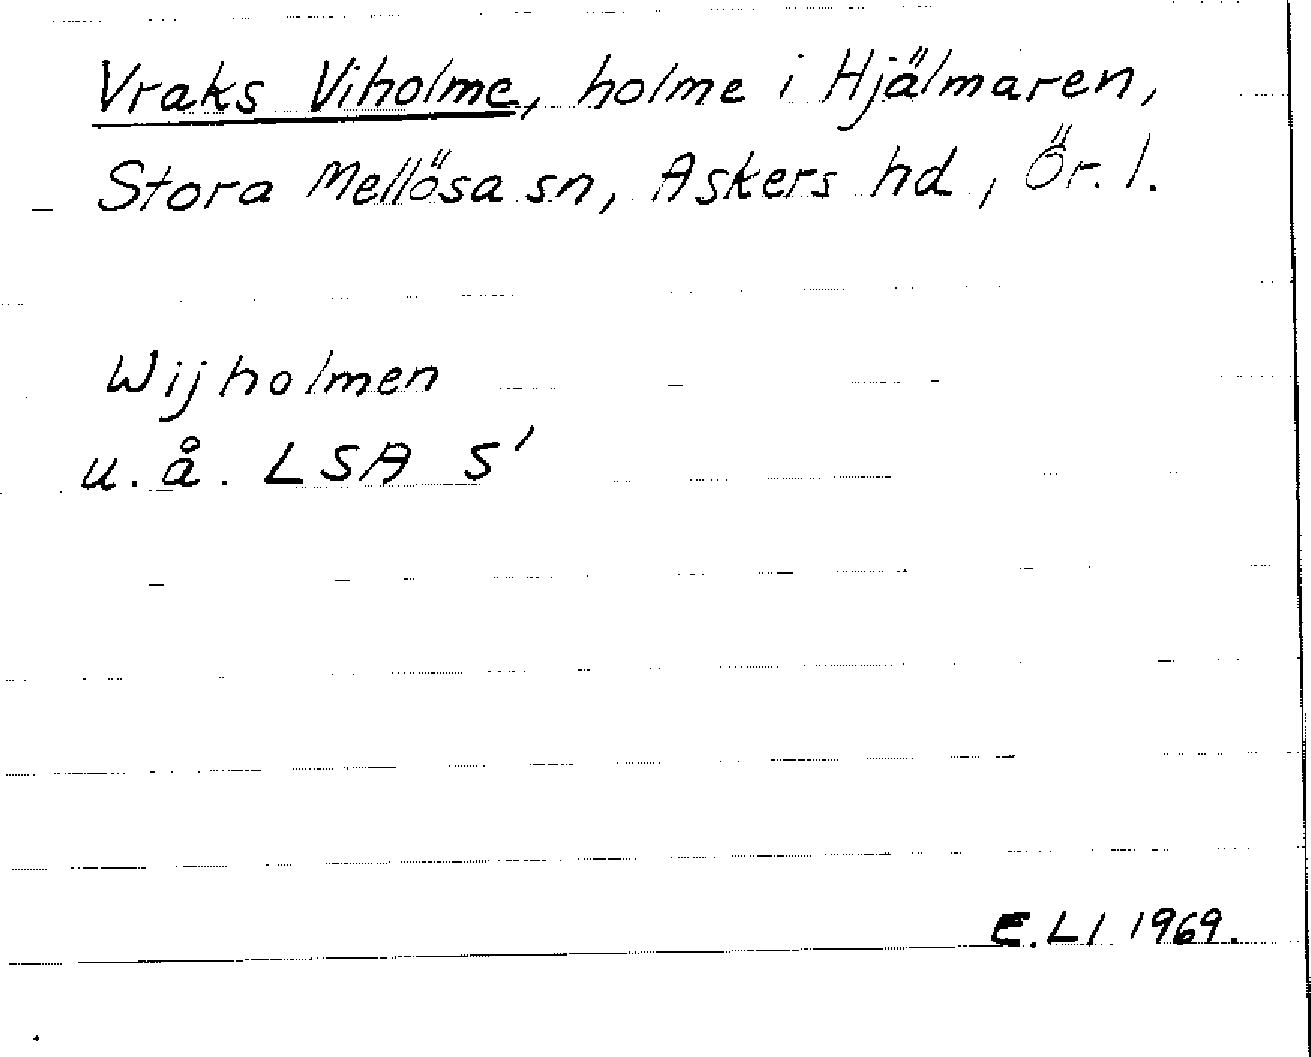 Vraks Viholme, holme i Hjälmaren,
Stora Mellösa sn, Askers hd, Ör. l.
Wijholmen
u.å. LSA S'
E.Ll 1969.